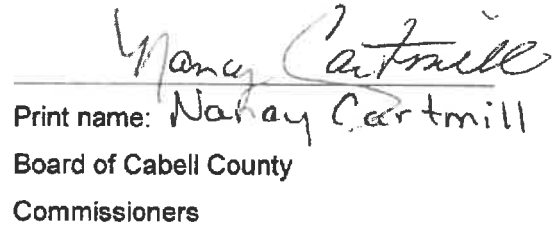 Nancy Cartmill
Print name: Nancy Cartmill
Board of Cabell County
Commissioners